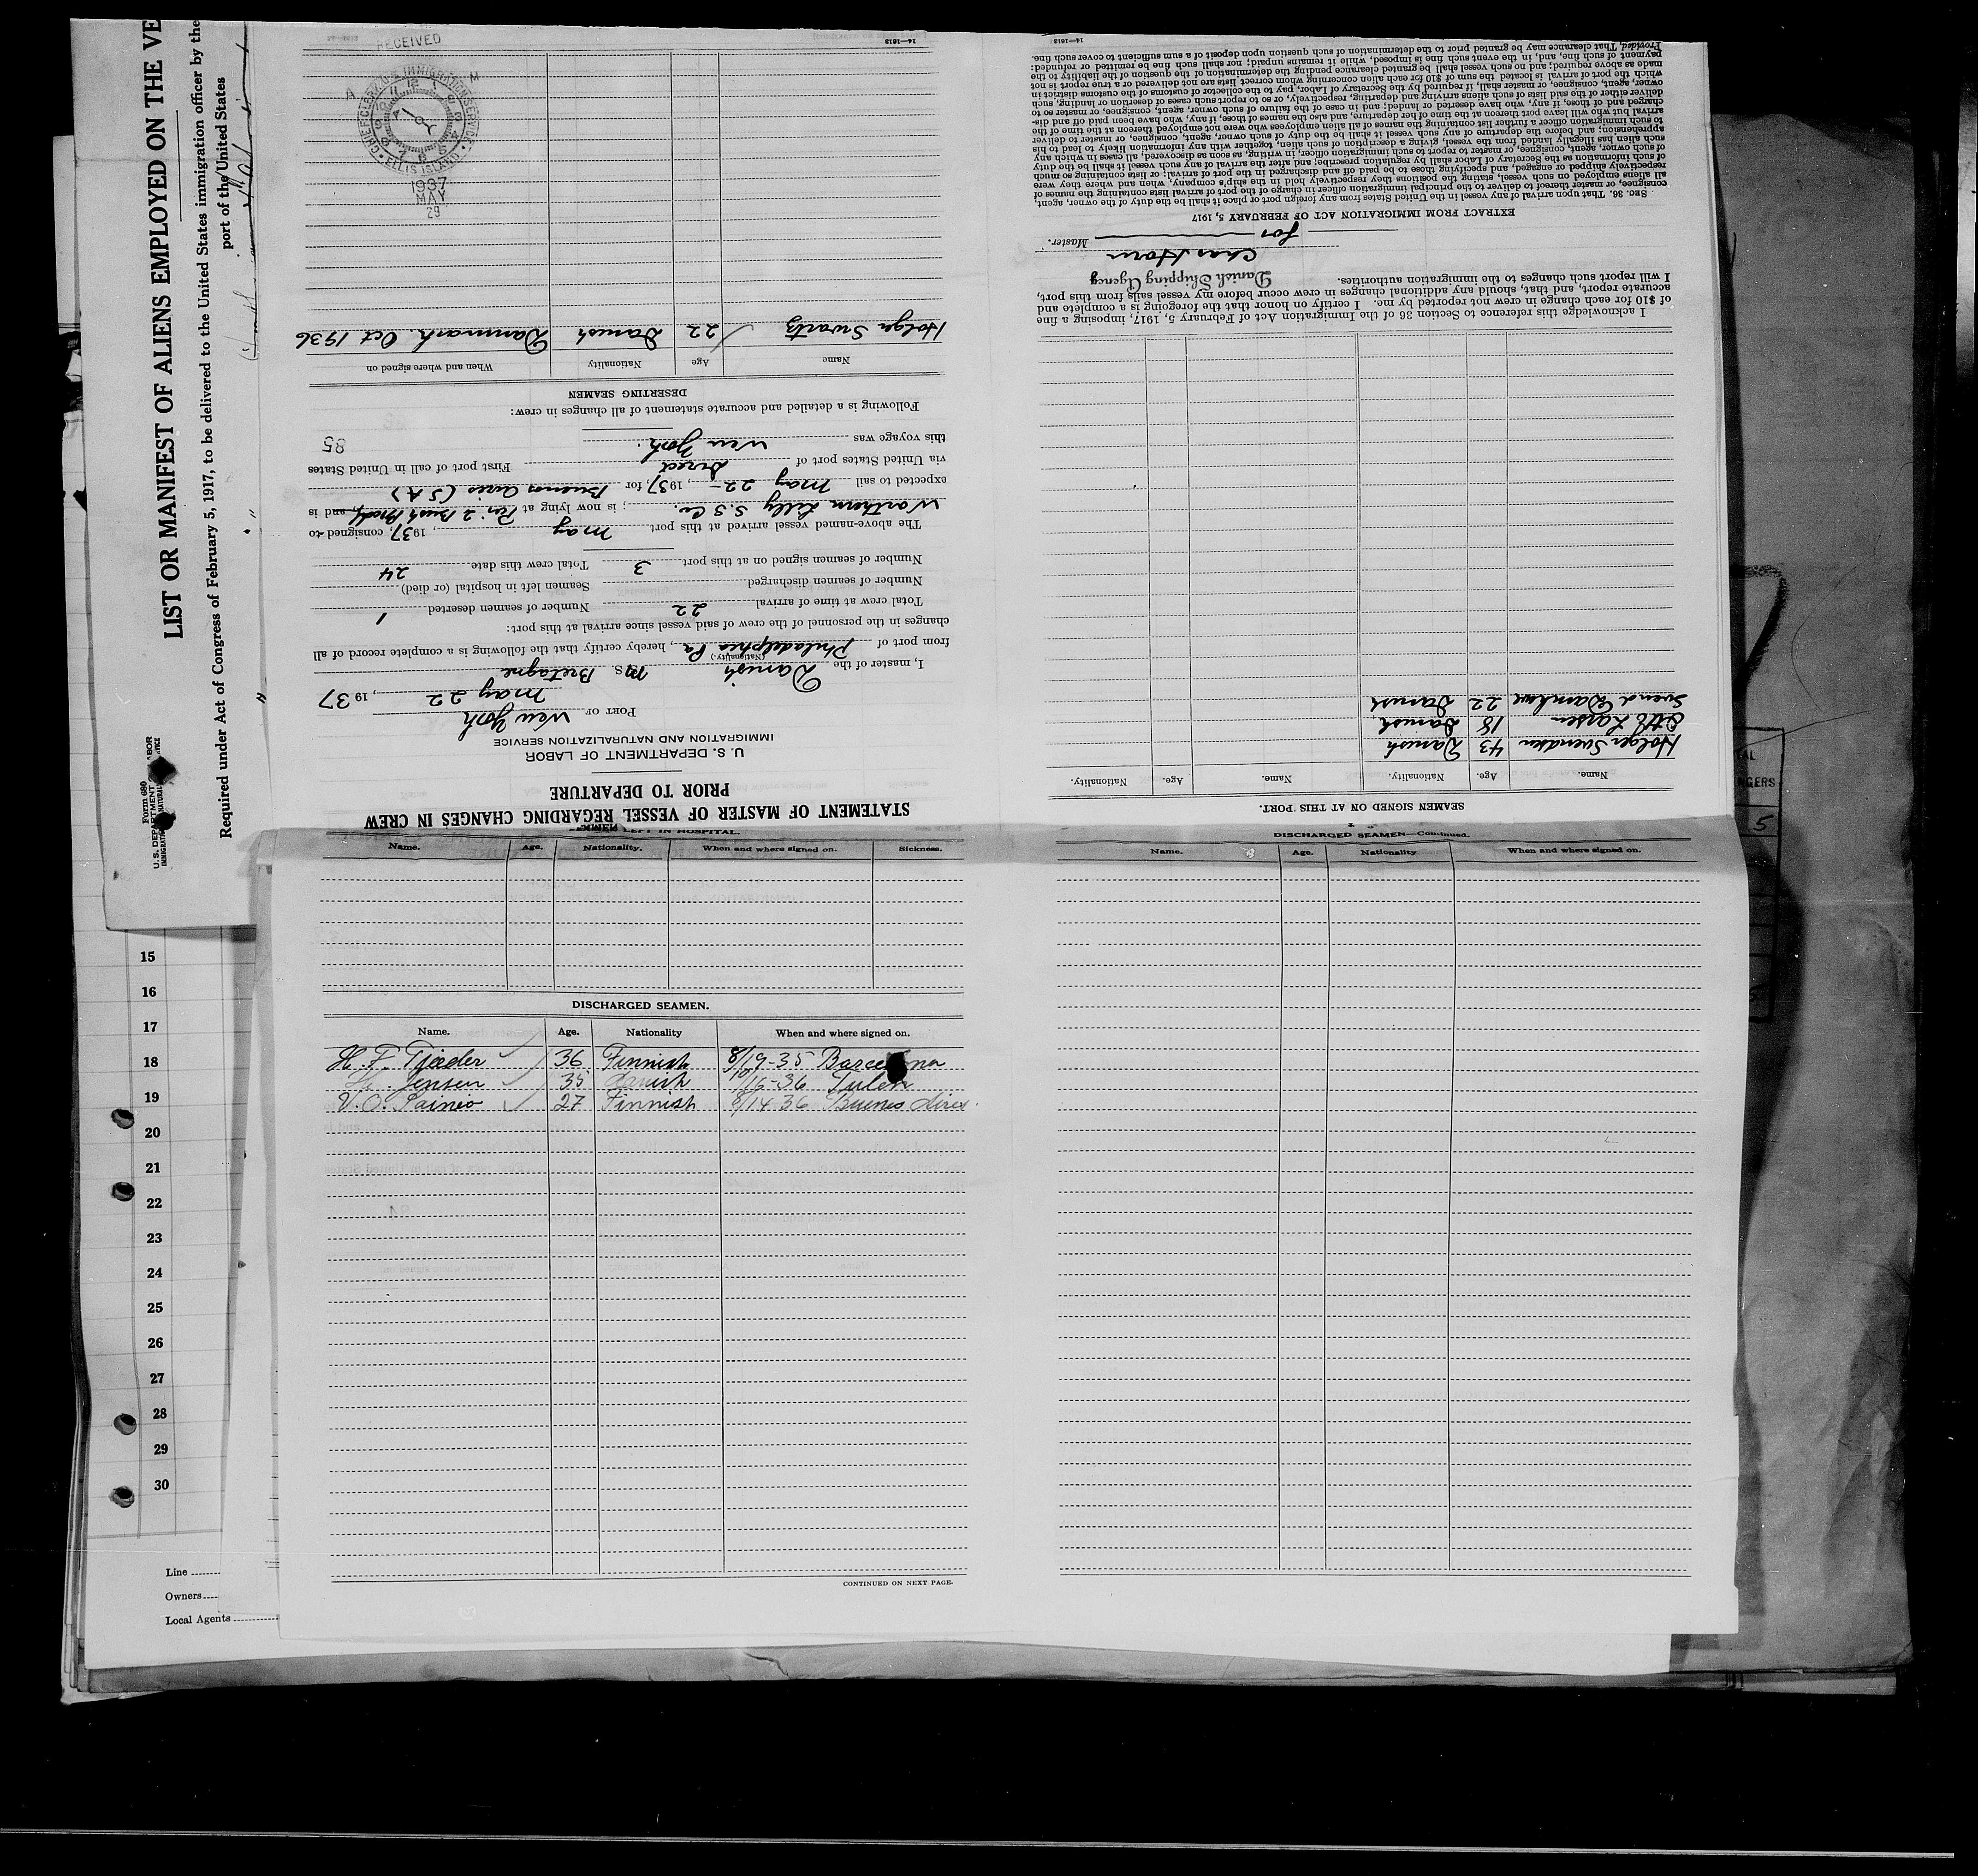 LIST OR MANIFEST OF ALIENS EMPLOYED ON THE VE
Required under Act of Congress of February 5, 1917, to be delivered to the United States immigration officer by the
port of the United States
Form 680
U. S. DEPARTMENT LABOR
STATEMENT OF MASTER OF VESSEL REGARDING CHANGES IN CREW
PRIOR TO DEPARTURE
U. S. DEPARTMENT OF LABOR
IMMIGRATION AND NATURALIZATION SERVICE
PORT OF New York
May 22, 1937
I, master of the Danish MS Bretagne
(Nationality.)
from port of Philadelphia Pa, hereby certify that the following is a complete record of all
changes in the personnel of the crew of said vessel since arrival at this port:
Total crew at time of arrival 22 Number of seamen deserted 1
Number of seamen discharged Seamen left in hospital (or died)
Number of seamen signed on at this port 3 Total crew this date 24
The above-named vessel arrived at this port May, 1937, consigned to
S.S Co.; is now lying at Pier 2 Bush and is
expected to sail May 22-, 1937, for Buenos Aires (S A)
via United States port of Direct First port of call in United States
this voyage was New York. 85
Following is a detailed and accurate statement of all changes in crew:
DESERTING SEAMEN
Name Age Nationality When and where signed on
Holger Swartz 22 Danish Danmark Oct 1936
RECEIVED
A M
U.S. IMMIGRATION SERVICE
ELLIS ISLAND
1937
MAY
29
14—1613
SEAMEN SIGNED ON AT THIS PORT.
Name. Age. Nationality. Name. Age. Nationality.
Holger Svendsen 43 Danish
18 Danish
Svend 22 Danish
I acknowledge this reference to Section 36 of the Immigration Act of February 5, 1917, imposing a fine
of $10 for each change in crew not reported by me. I certify on honor that the foregoing is a complete and
accurate report, and that, should any additional changes in crew occur before my vessel sails from this port,
I will report such changes to the immigration authorities.
Danish Shipping Agency
Chas Horn
for Master.
EXTRACT FROM IMMIGRATION ACT OF FEBRUARY 5, 1917
SEC. 36. That upon arrival of any vessel in the United States from any foreign port or place it shall be the duty of the owner, agent,
consignee, or master thereof to deliver to the principal immigration officer in charge of the port of arrival lists containing the names of
all aliens employed on such vessel, stating the positions they respectively hold in the ship's company, when and where they were
respectively shipped or engaged, and specifying those to be paid off and discharged in the port of arrival; or lists containing so much
of such information as the Secretary of Labor shall by regulation prescribe; and after the arrival of any such vessel it shall be the duty
of such owner, agent, consignee, or master to report to such immigration officer, in writing, as soon as discovered, all cases in which any
such alien has illegally landed from the vessel, giving a description of such alien, together with any information likely to lead to his
apprehension; and before the departure of any such vessel it shall be the duty of such owner, agent, consignee, or master to deliver
to such immigration officer a further list containing the names of all alien employees who were not employed thereon at the time of the
arrival but who will leave port thereon at the time of her departure, and also the names of those, if any, who have been paid off and dis-
charged and of those, if any, who have deserted or landed; and in case of the failure of such owner, agent, consignee, or master so to
deliver either of the said lists of such aliens arriving and departing, respectively, or so to report such cases of desertion or landing, such
owner, agent, consignee, or master shall, if required by the Secretary of Labor, pay to the collector of customs of the customs district in
which the port of arrival is located the sum of $10 for each alien concerning whom correct lists are not delivered or a true report is not
made as above required; and no such vessel shall be granted clearance pending the determination of the question of the liability to the
payment of such fine, and, in the event such fine is imposed, while it remains unpaid; nor shall such fine be remitted or refunded:
Provided, That clearance may be granted prior to the determination of such question upon deposit of a sum sufficient to cover such fine.
14—1613
LEFT IN HOSPITAL.
Name. Age. Nationality. When and where signed on. Sickness.
DISCHARGED SEAMEN.
Name. Age. Nationality When and where signed on.
H. F. Tjæder 36 Finnish 8/19-35 Barcelona
Jensen 35 Danish 10/15-36
V. O. Painio 27 Finnish 8/14 36 Buenos Aires.
CONTINUED ON NEXT PAGE.
DISCHARGED SEAMEN—Continued.
Name. Age. Nationality When and where signed on.
15
16
17
18
19
20
21
22
23
24
25
26
27
28
29
30
Line
Owners
Local Agents
NGERS
5